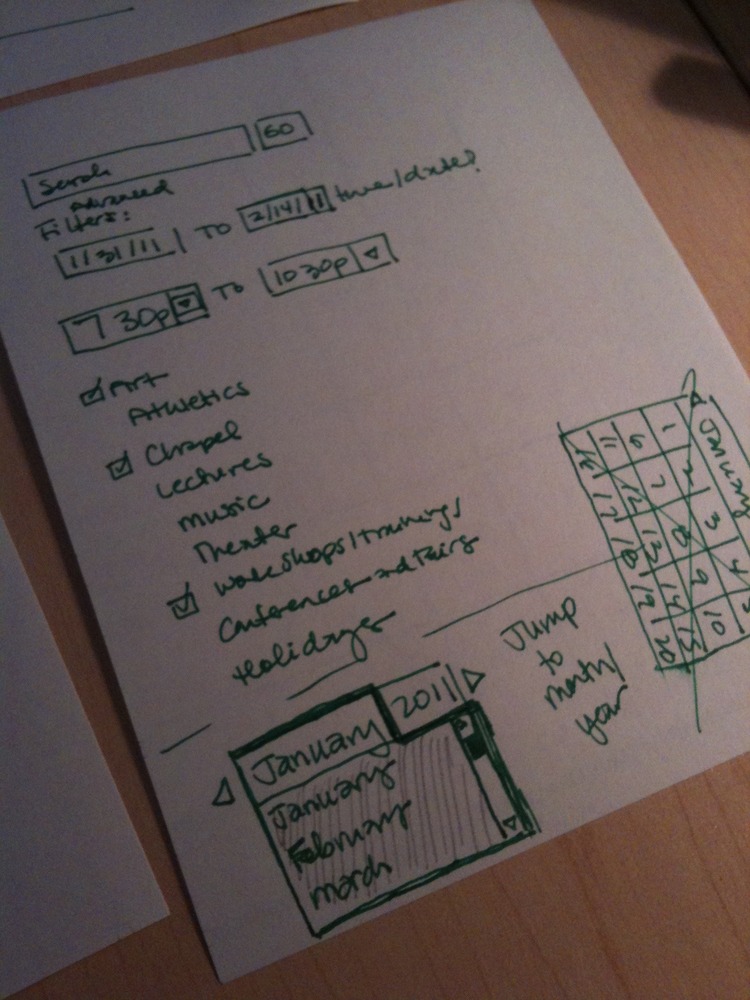 Search GO
Advanced
Filters:
1/31/11 TO 2/14/11 time/date?
7 30p TO 10 30p
Art
Athletics
Chapel
Lectures
music
Theater
workshops/trainings
Conferences and Fairs
Holidays
January 2011
January
February
march
Jump
to
month/
year
January
1 2 3 4
6 7 8 9 10
11 12 13 14 15
17 18 19 20